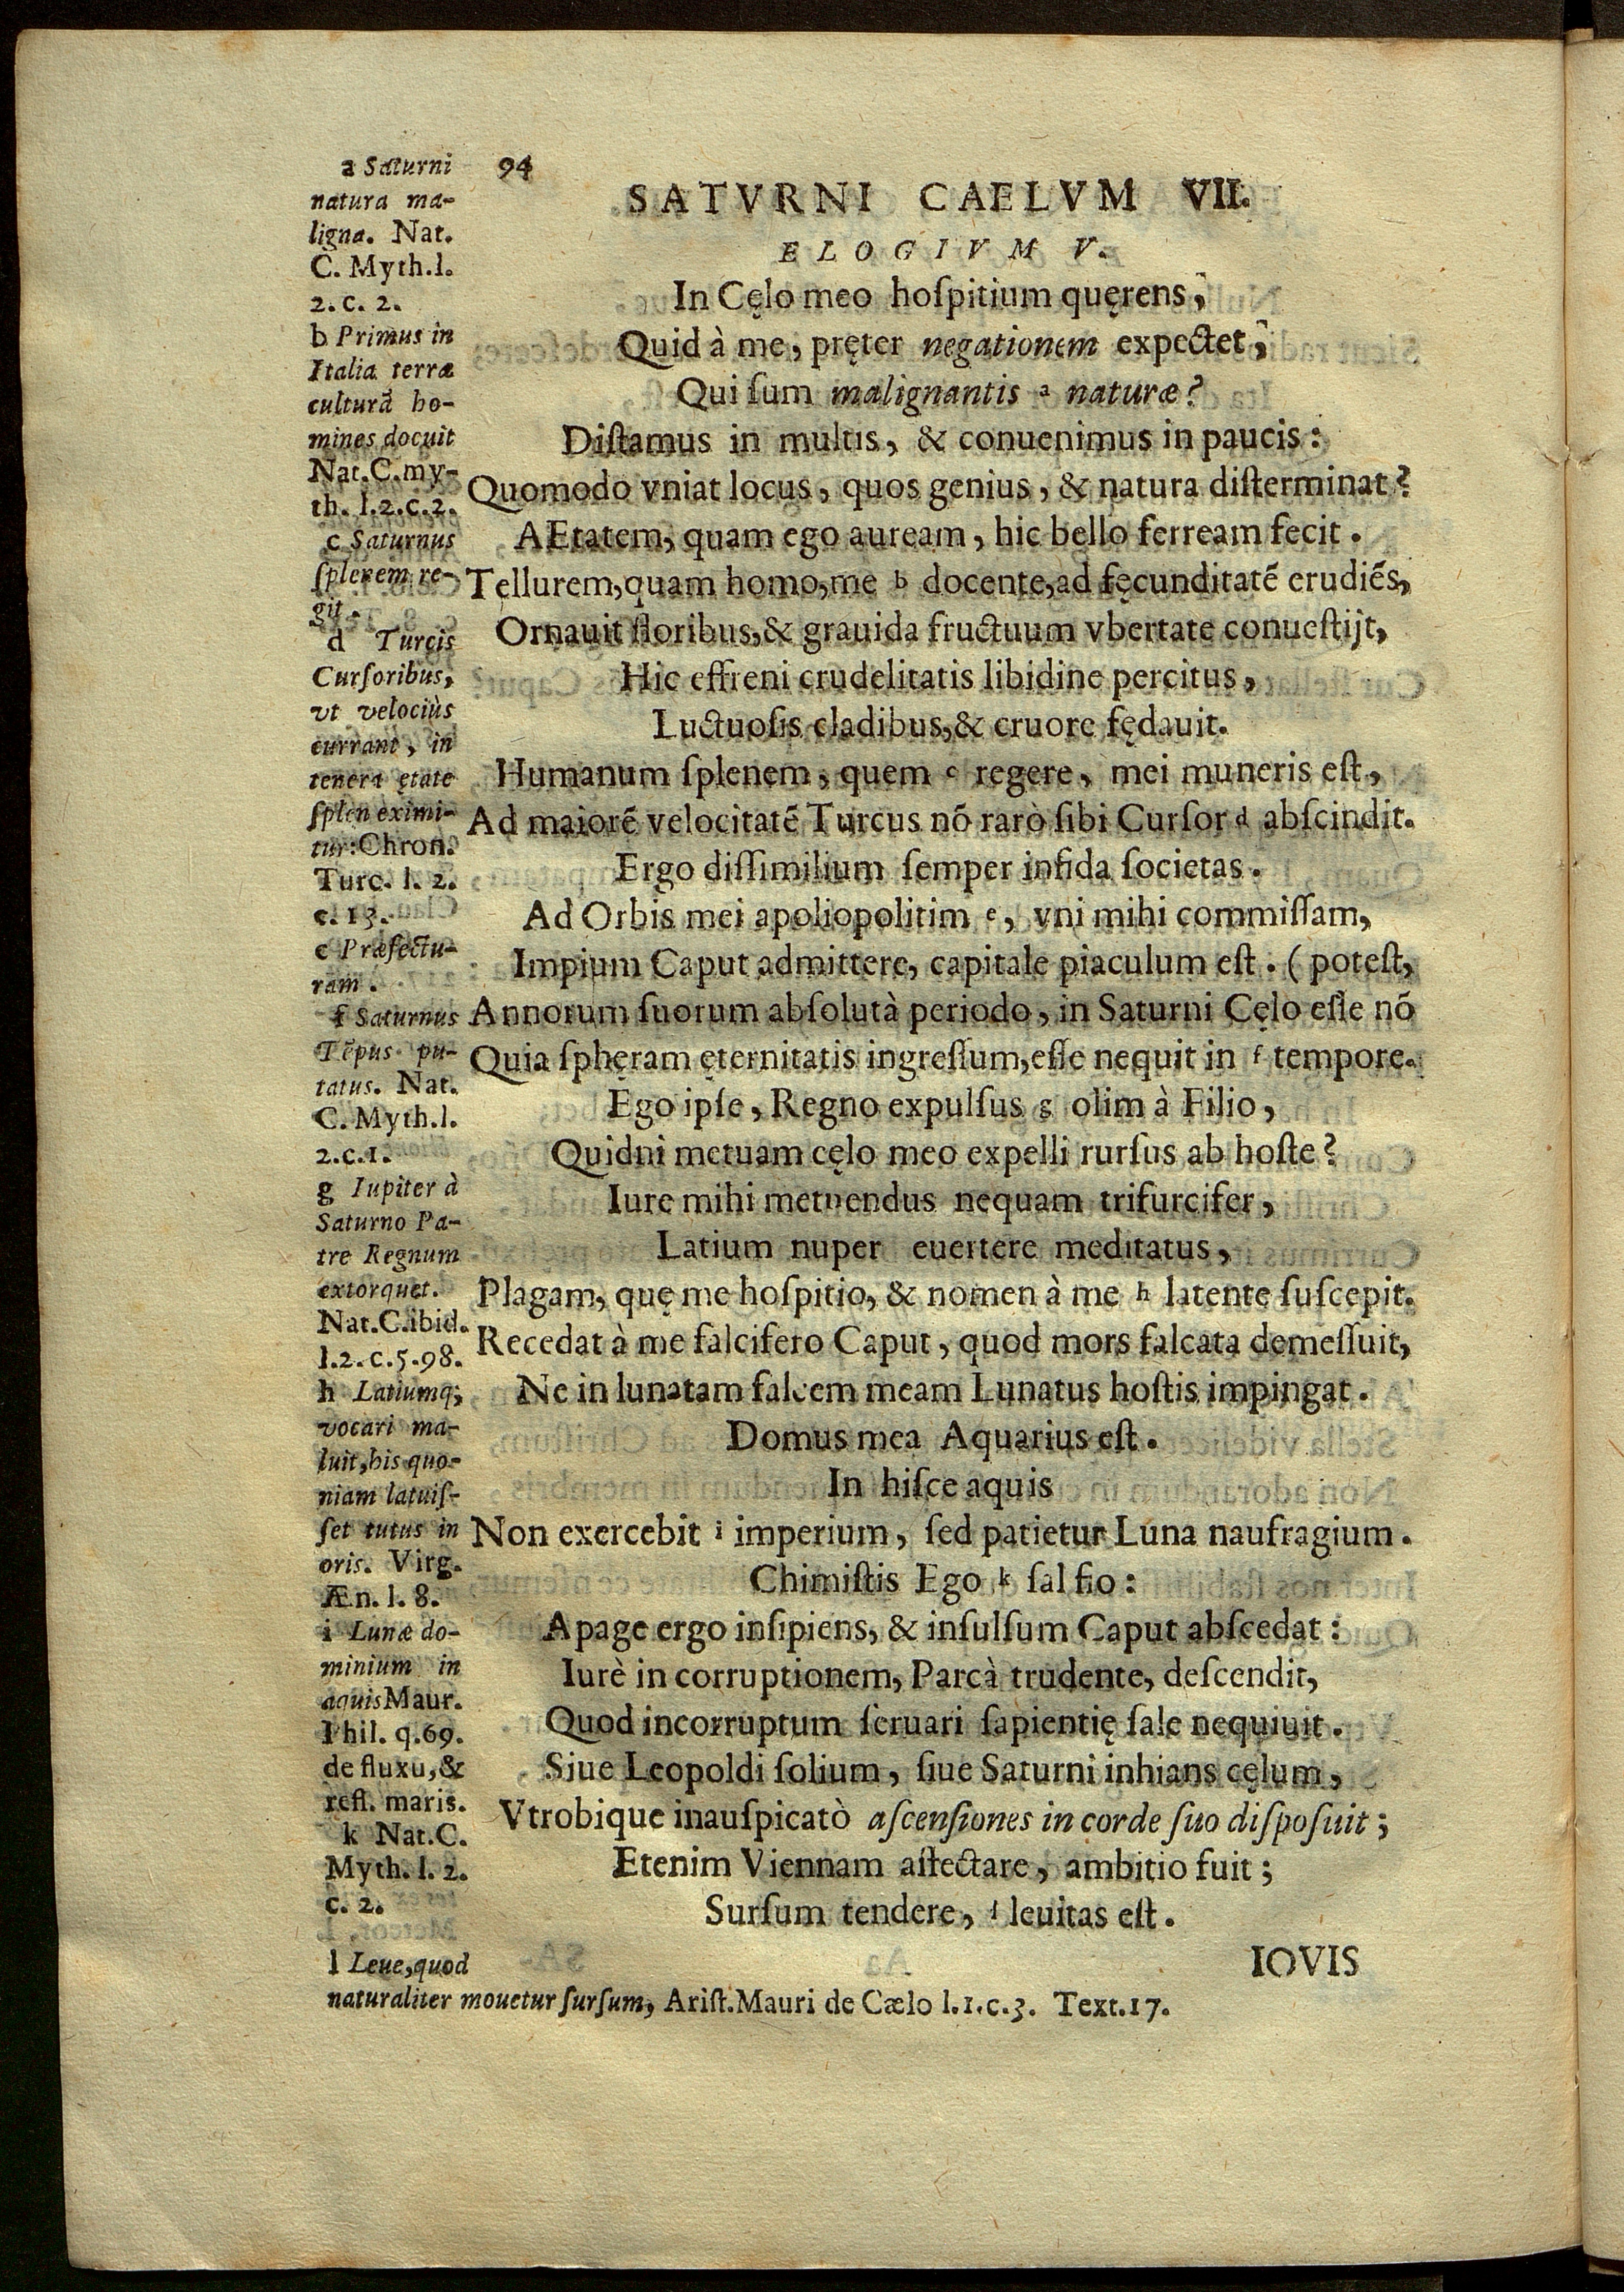 94
SATVRNI CAELVM VII.
ELOGIVM V.
In Cęlo meo hoſpitium quęrens,
Quid à me, pręter negationem expectet,
Qui ſum malignantis a naturæ?
Diſtamus in multis, & conuenimus in paucis:
Quomodo vniat locus, quos genius, & natura diſterminat?
AEtatem, quam ego auream, hic bello ferream fecit.
Tellurem, quam homo, me b docente, ad fęcunditatē erudiēs,
Ornauit floribus, & grauida fructuum vbertate conueſtijt,
Hic effreni crudelitatis libidine percitus,
Luctuoſis cladibus, & cruore fędauit.
Humanum ſplenem, quem c regere, mei muneris eſt,
Ad maiorē velocitatē Turcus nō rarò ſibi Curſor d abſcindit.
Ergo diſſimilium ſemper infida ſocietas.
Ad Orbis mei apoliopolitim e, vni mihi commiſſam,
Impium Caput admittere, capitale piaculum eſt. (poteſt,
Annorum ſuorum abſolutà periodo, in Saturni Cęlo eſſe nō
Quia ſphęram ęternitatis ingreſſum, eſſe nequit in f tempore.
Ego ipſe, Regno expulſus g olim à Filio,
Quidni metuam cęlo meo expelli rurſus ab hoſte?
Iure mihi metuendus nequam trifurcifer,
Latium nuper euertere meditatus,
Plagam, quę me hoſpitio, & nomen à me h latente ſuſcepit.
Recedat à me falcifero Caput, quod mors falcata demeſſuit,
Ne in lunatam falcem meam Lunatus hoſtis impingat.
Domus mea Aquarius eſt.
In hiſce aquis
Non exercebit i imperium, ſed patietur Luna naufragium.
Chimiſtis Ego k ſal fio:
Apage ergo inſipiens, & inſulſum Caput abſcedat:
Iurè in corruptionem, Parcà trudente, deſcendit,
Quod incorruptum ſeruari ſapientię ſale nequiuit.
Siue Leopoldi ſolium, ſiue Saturni inhians cęlum,
Vtrobique inauſpicatò aſcenſiones in corde ſuo diſpoſuit;
Etenim Viennam affectare, ambitio fuit;
Surſum tendere, l leuitas eſt.
IOVIS
a Saturni
natura ma-
ligna. Nat.
C. Myth. l.
2. c. 2.
b Primus in
Italia terræ
culturā ho-
mines docuit
Nat. C. my-
th. l. 2. c. 2.
c Saturnus
ſplenem re-
git.
d Turcis
Curſoribus,
vt velociùs
currant, in
tenera ętate
ſplen eximi-
tur: Chron.
Turc. l. 2.
c. 13.
e Præfectu-
ram.
f Saturnus
Tēpus pu-
tatus. Nat.
C. Myth. l.
2. c. 1.
g Iupiter à
Saturno Pa-
tre Regnum
extorquet.
Nat. C. ibid.
l. 2. c. 5. 98.
h Latiumq;
vocari ma-
luit, his quo-
niam latuiſ-
ſet tutus in
oris. Virg.
Æn. l. 8.
i Lunæ do-
minium in
aquis Maur.
Phil. q. 69.
de fluxu, &
refl. maris.
k Nat. C.
Myth. l. 2.
c. 2.
l Leue, quod
naturaliter mouetur ſurſum, Ariſt. Mauri de Cælo l. 1. c. 3. Text. 17.